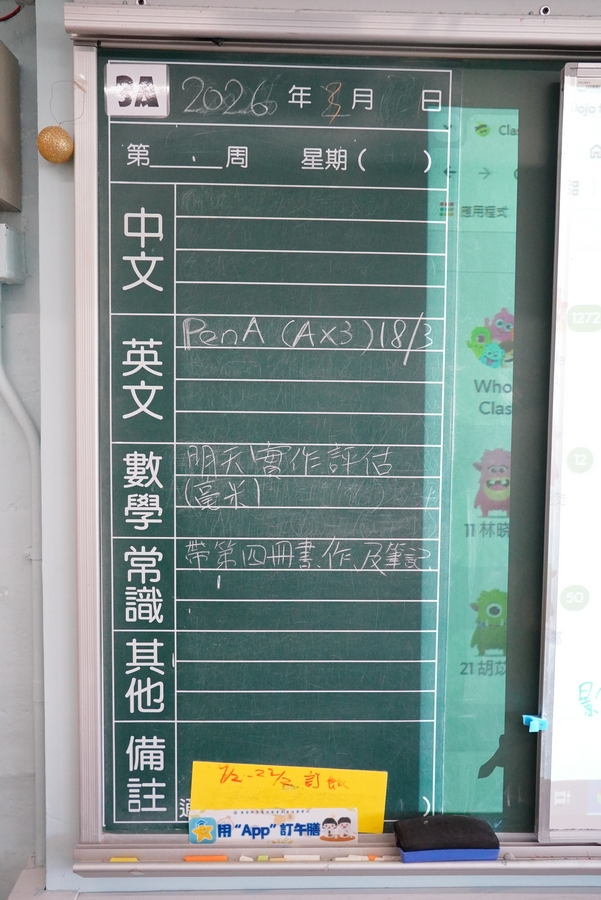 3A 2026 年 3 月 日
第 周 星期 ( )
中文
英文 PenA (A×3) 18/3
數學 明天實作評估
(毫米)
常識 帶第四冊書、作、及筆記
其他
備註
訂飯
通 )
用“App”訂午膳
Clas
應用程式
1272
Who
Clas
12
11 林曉
50
21 胡